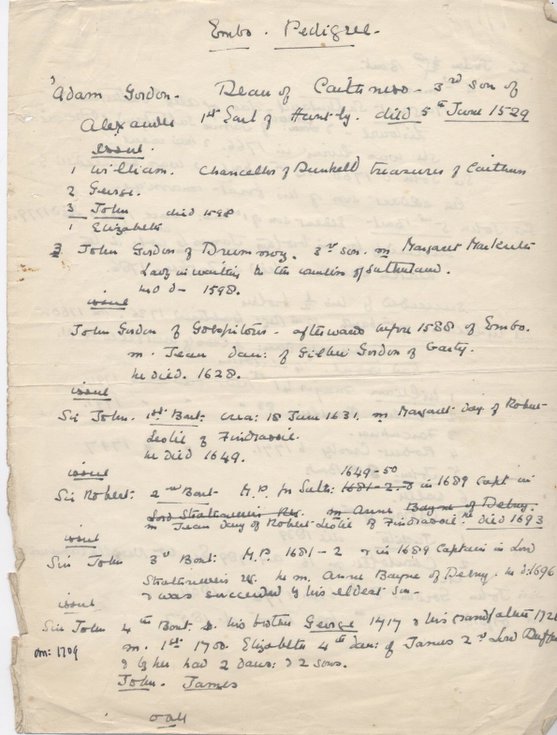 Embo. Pedigree.
Adam Gordon. Dean of Caithness - 3rd son of
Alexander 1st Earl of Huntly. died 5th June 1529
Issue.
1 William. Chancellor of Dunkeld treasurer of Caithness
2 George.
3 John died 1598
1 Elizabeth
3 John Gordon of Drummoy. 3rd son. m Margaret
Lady in waiting to the countess of Sutherland.
1598.
issue
John Gordon of Golspitour - afterward before 1588 of Embo.
m. Jean Dau: of Gilbert Gordon of Garty.
he died. 1628.
issue
Sir John. 1st Bart: crea: 18 June 1631. m Margaret Day of Robert
Leslie of Findrassie.
he Died 1649.
issue
1649-50
Sir Robert: 2nd Bart. M.P. for Suth: 1681-2 & in 1689 Capt in
Lord Strathnavers Reg. m Anne Bayne of Delny.
m Jean Day of Robert Leslie of Findrassie. he died 1693
issue
Sir John 3rd Bart: M.P. 1681-2 & in 1689 Captain in Lord
Strathnavers he m. Anne Bayne of Delny. he d: 1696
& was succeeded by his eldest Son.
issue
Sir John 4th Bart. to his brother George 1717 & his
m. 1st 1700. Elizabeth 4th dau: of James 2nd Lord Duffus
om: 1709
& by her had 2 daus: & 2 sons.
John. James